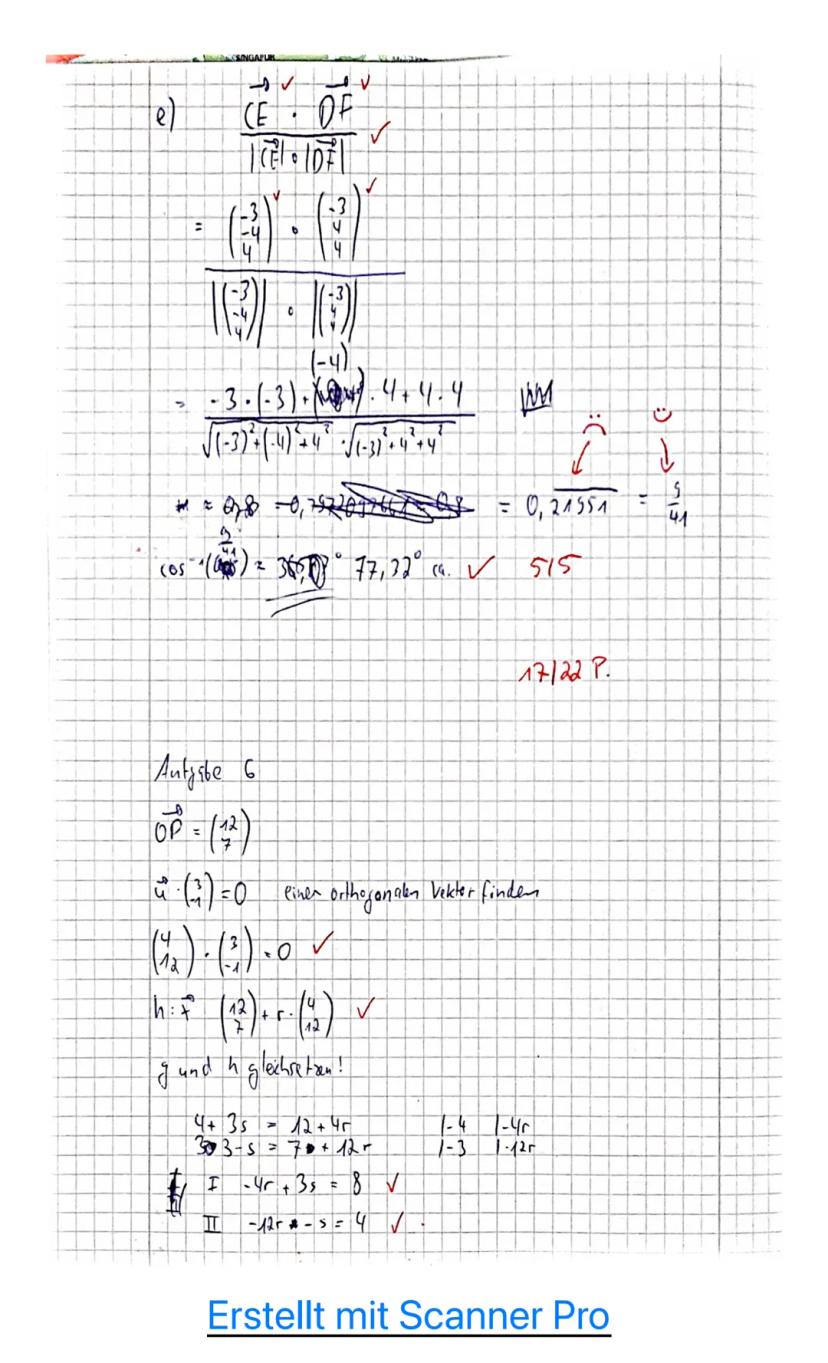 SINGAPUR
e) CE · DF
|CE| · |DF|
= (-3 -4 4) · (-3 4 4)
|(-3 -4 4)| · |(-3 4 4)|
(-4)
= -3 · (-3) + · 4 + 4 · 4
√(-3)²+(-4)²+4² · √(-3)²+4²+4²
≈ 0,8 = 0,21951 = 9/41
9/41
cos⁻¹( ) ≈ 77,32° ca. ✓ 5/5
17/22 P.
Aufgabe 6
OP = (12 7)
u · (3 -1) = 0 einen orthogonalen Vektor finden
(4 12) · (3 -1) = 0 ✓
h: x (12 7) + r · (4 12) ✓
g und h gleichsetzen!
4 + 3s = 12 + 4r |-4 |-4r
3 - s = 7 + 12r |-3 |-12r
I -4r + 3s = 8 ✓
II -12r - s = 4 ✓
Erstellt mit Scanner Pro